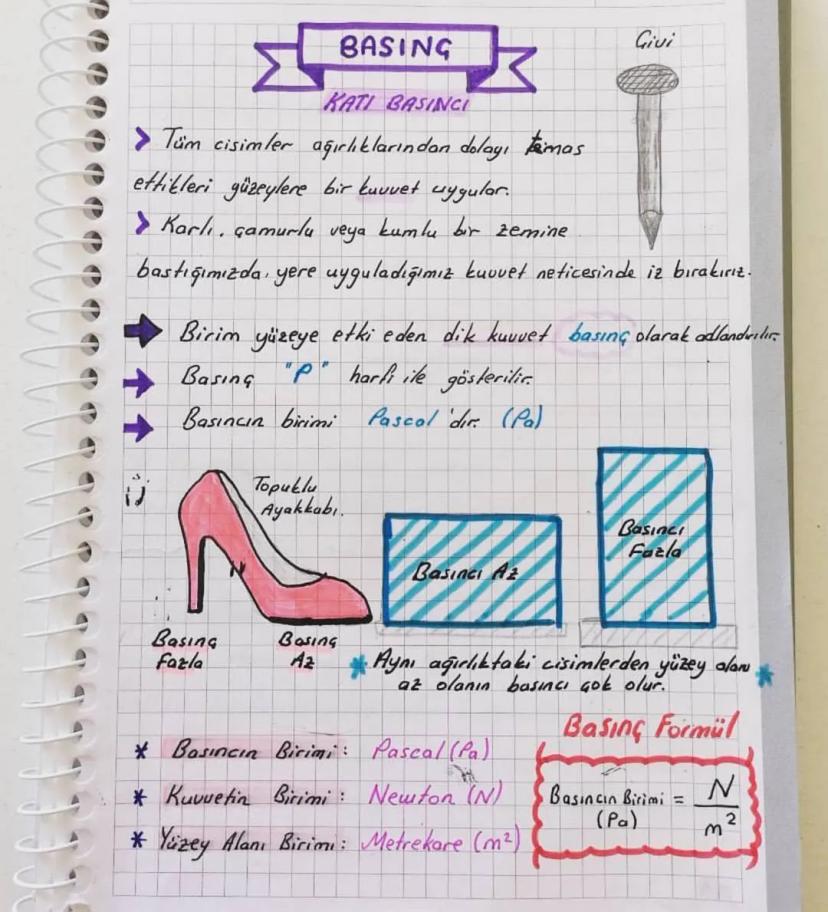 BASINÇ
Çivi
KATI BASINCI
> Tüm cisimler ağırlıklarından dolayı temas
ettikleri yüzeylere bir kuvvet uygular.
> Karlı, çamurlu veya kumlu bir zemine
bastığımızda, yere uyguladığımız kuvvet neticesinde iz bırakırız.
Birim yüzeye etki eden dik kuvvet basınç olarak adlandırılır.
Basınç "P" harfi ile gösterilir.
Basıncın birimi Pascal'dır. (Pa)
Topuklu
Ayakkabı.
Basıncı Az
Basıncı
Fazla
Basınç
Fazla
Basınç
Az
* Aynı ağırlıktaki cisimlerden yüzey alanı *
az olanın basıncı çok olur.
Basınç Formül
* Basıncın Birimi: Pascal (Pa)
* Kuvvetin Birimi: Newton (N)
* Yüzey Alanı Birimi: Metrekare (m²)
Basıncın Birimi = N
(Pa) m²